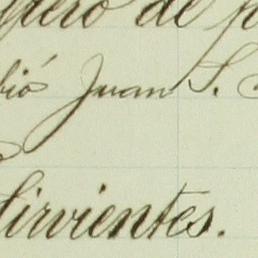 pero de p
bió Juan S.
Sirvientes.